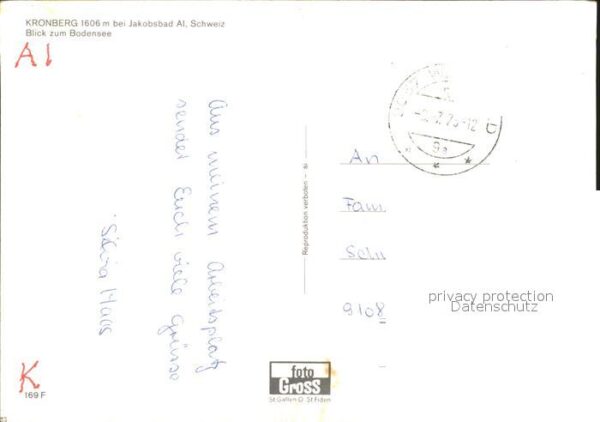 KRONBERG 1606 m bei Jakobsbad AI, Schweiz
Blick zum Bodensee
AI
Aus meinem Arbeitsplatz
sendet Euch viele Grüsse
Reproduktion verboten
An
Fam
Schu
9108
privacy protection
Datenschutz
K
169 F
foto
Gross
St. Gallen O St. Fiden